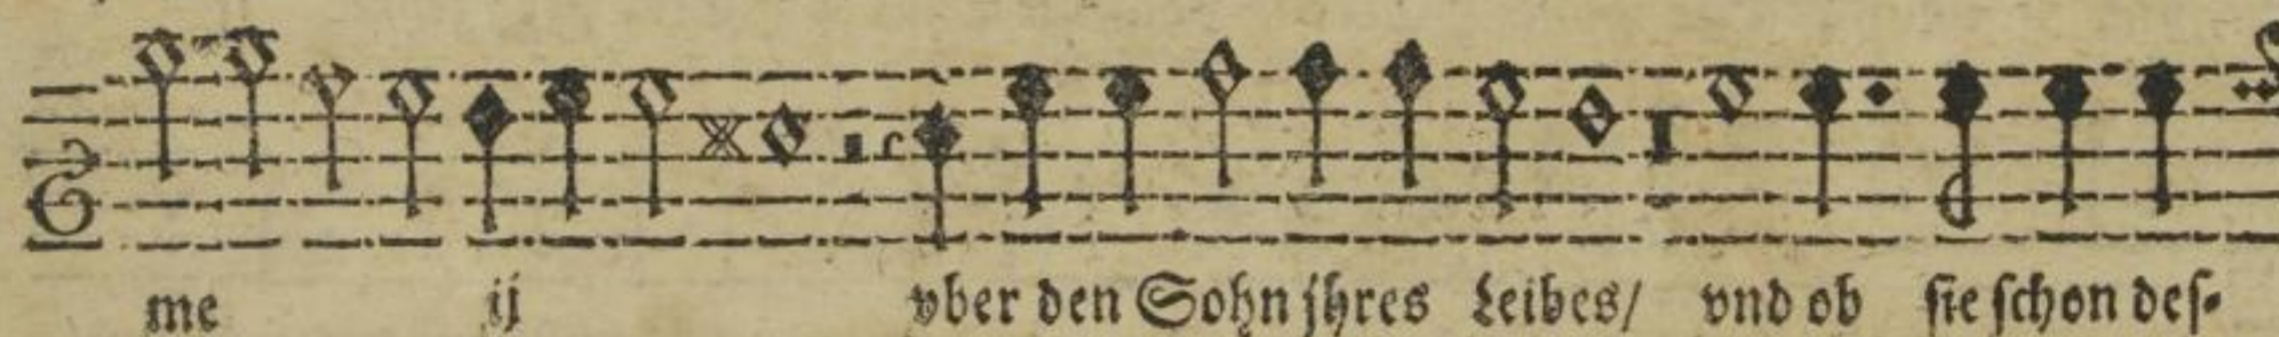 me ij vber den Sohn jhres Leibes/ vnd ob sie schon des-